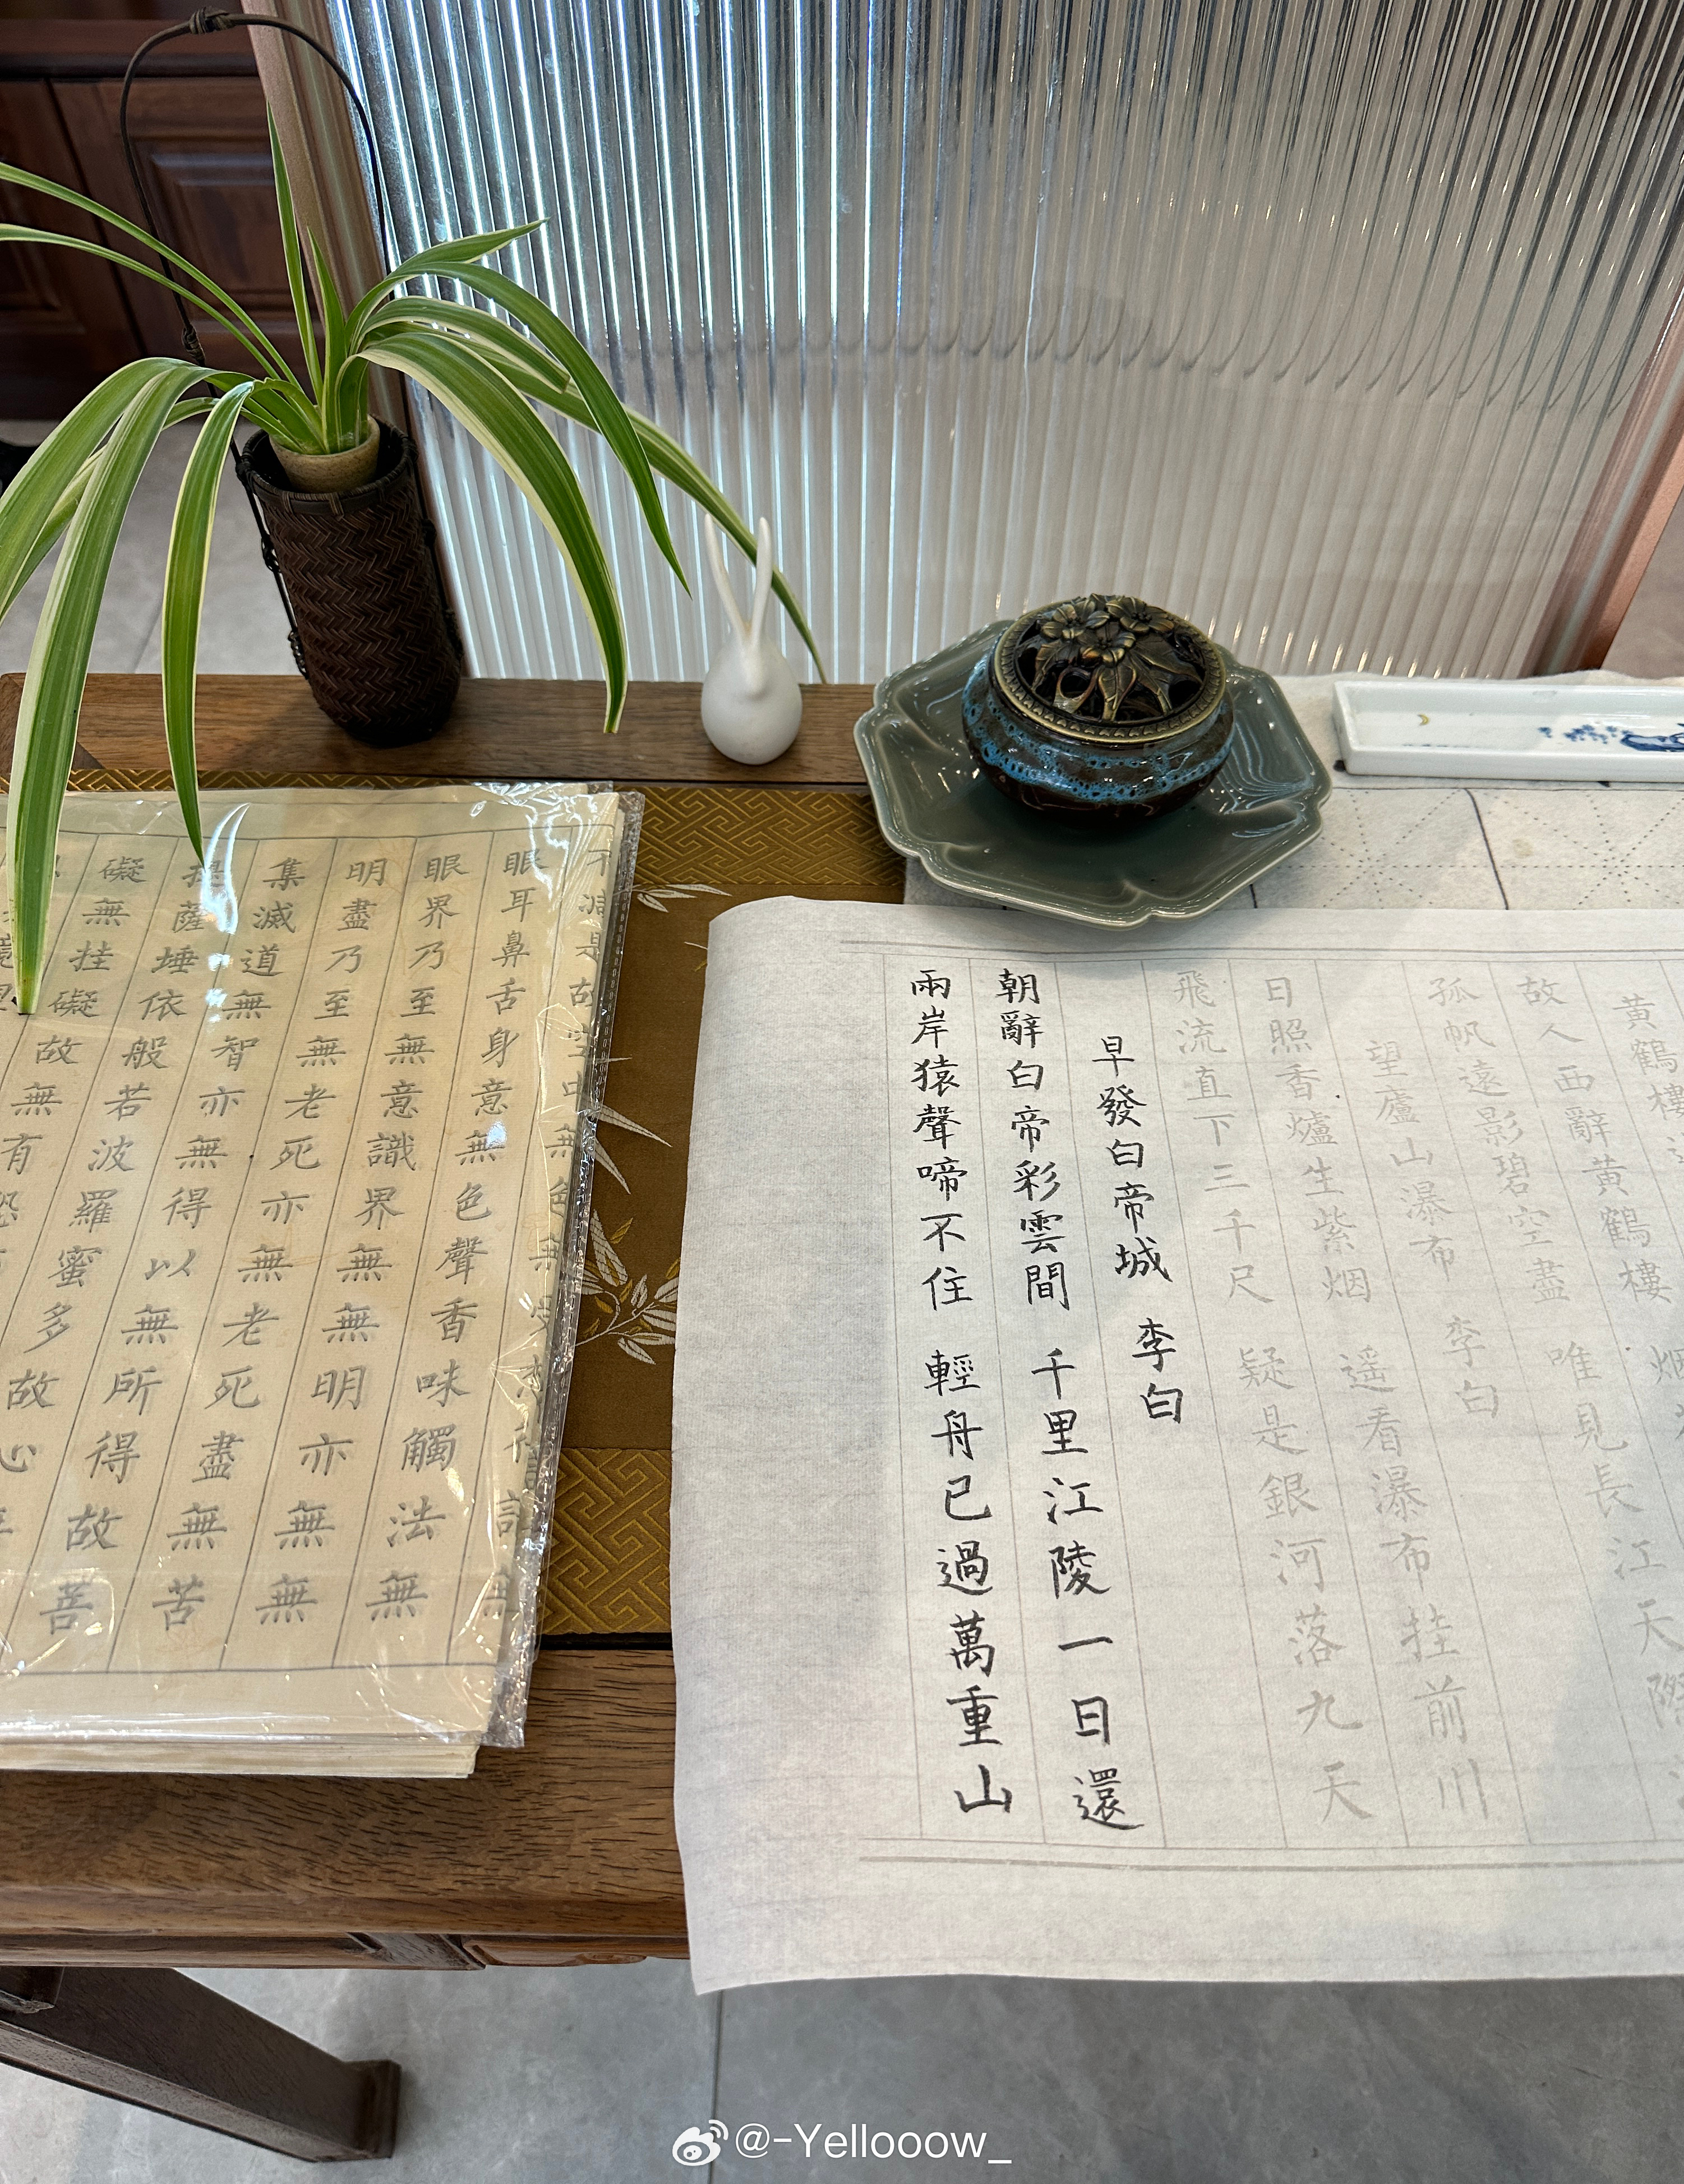 黃鶴樓送
故人西辭黃鶴樓 烟花
孤帆遠影碧空盡 唯見長江天際
望廬山瀑布 李白
日照香爐生紫烟 遥看瀑布挂前川
飛流直下三千尺 疑是銀河落九天
早發白帝城 李白
朝辭白帝彩雲間 千里江陵一日還
兩岸猿聲啼不住 輕舟已過萬重山
不減是故空中無色無受想行識無
眼耳鼻舌身意無色聲香味觸法無
眼界乃至無意識界無無明亦無無
明盡乃至無老死亦無老死盡無苦
集滅道無智亦無得以無所得故菩
提薩埵依般若波羅蜜多故心
礙無挂礙故無有恐
@-Yellooow_